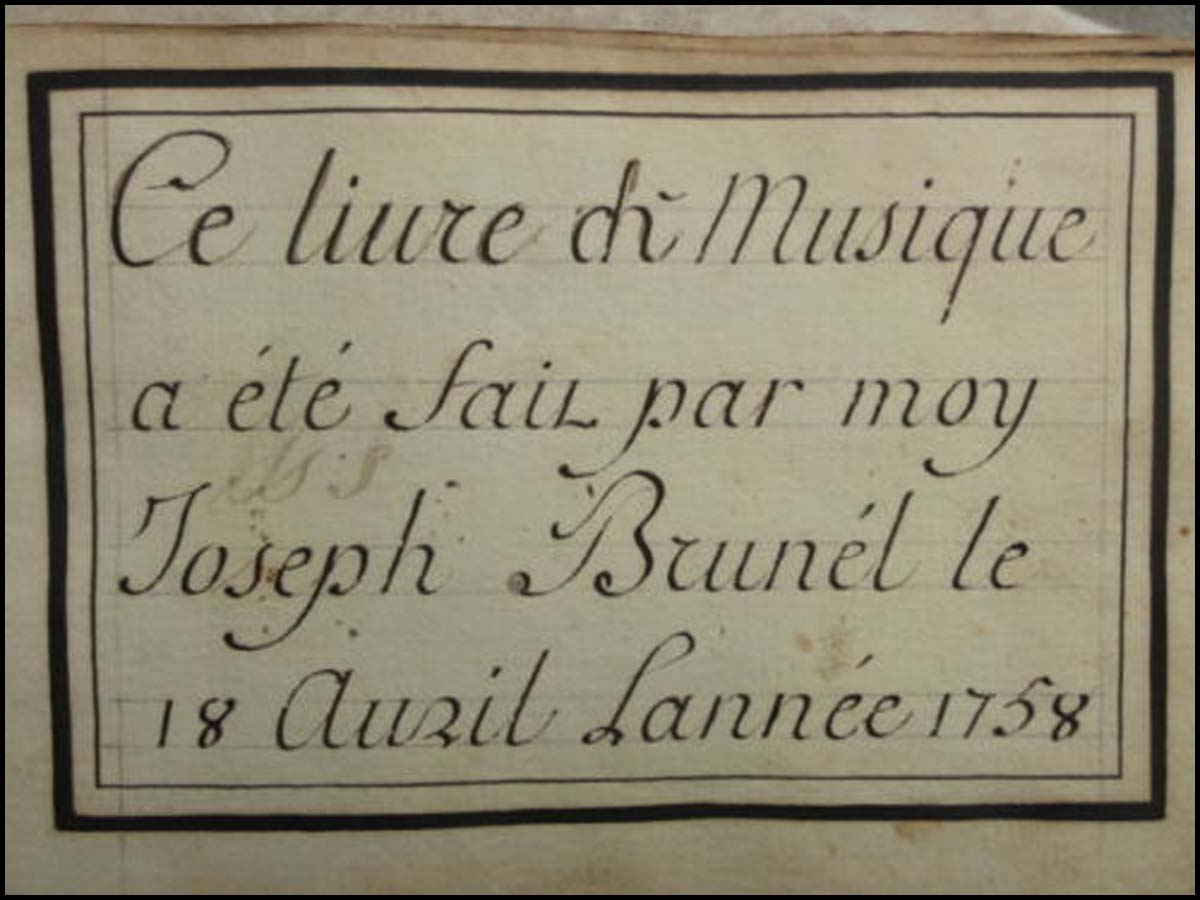 Ce liure de Musique
a été fait par moy
Joseph Brunél le
18 Auril Lannée 1758